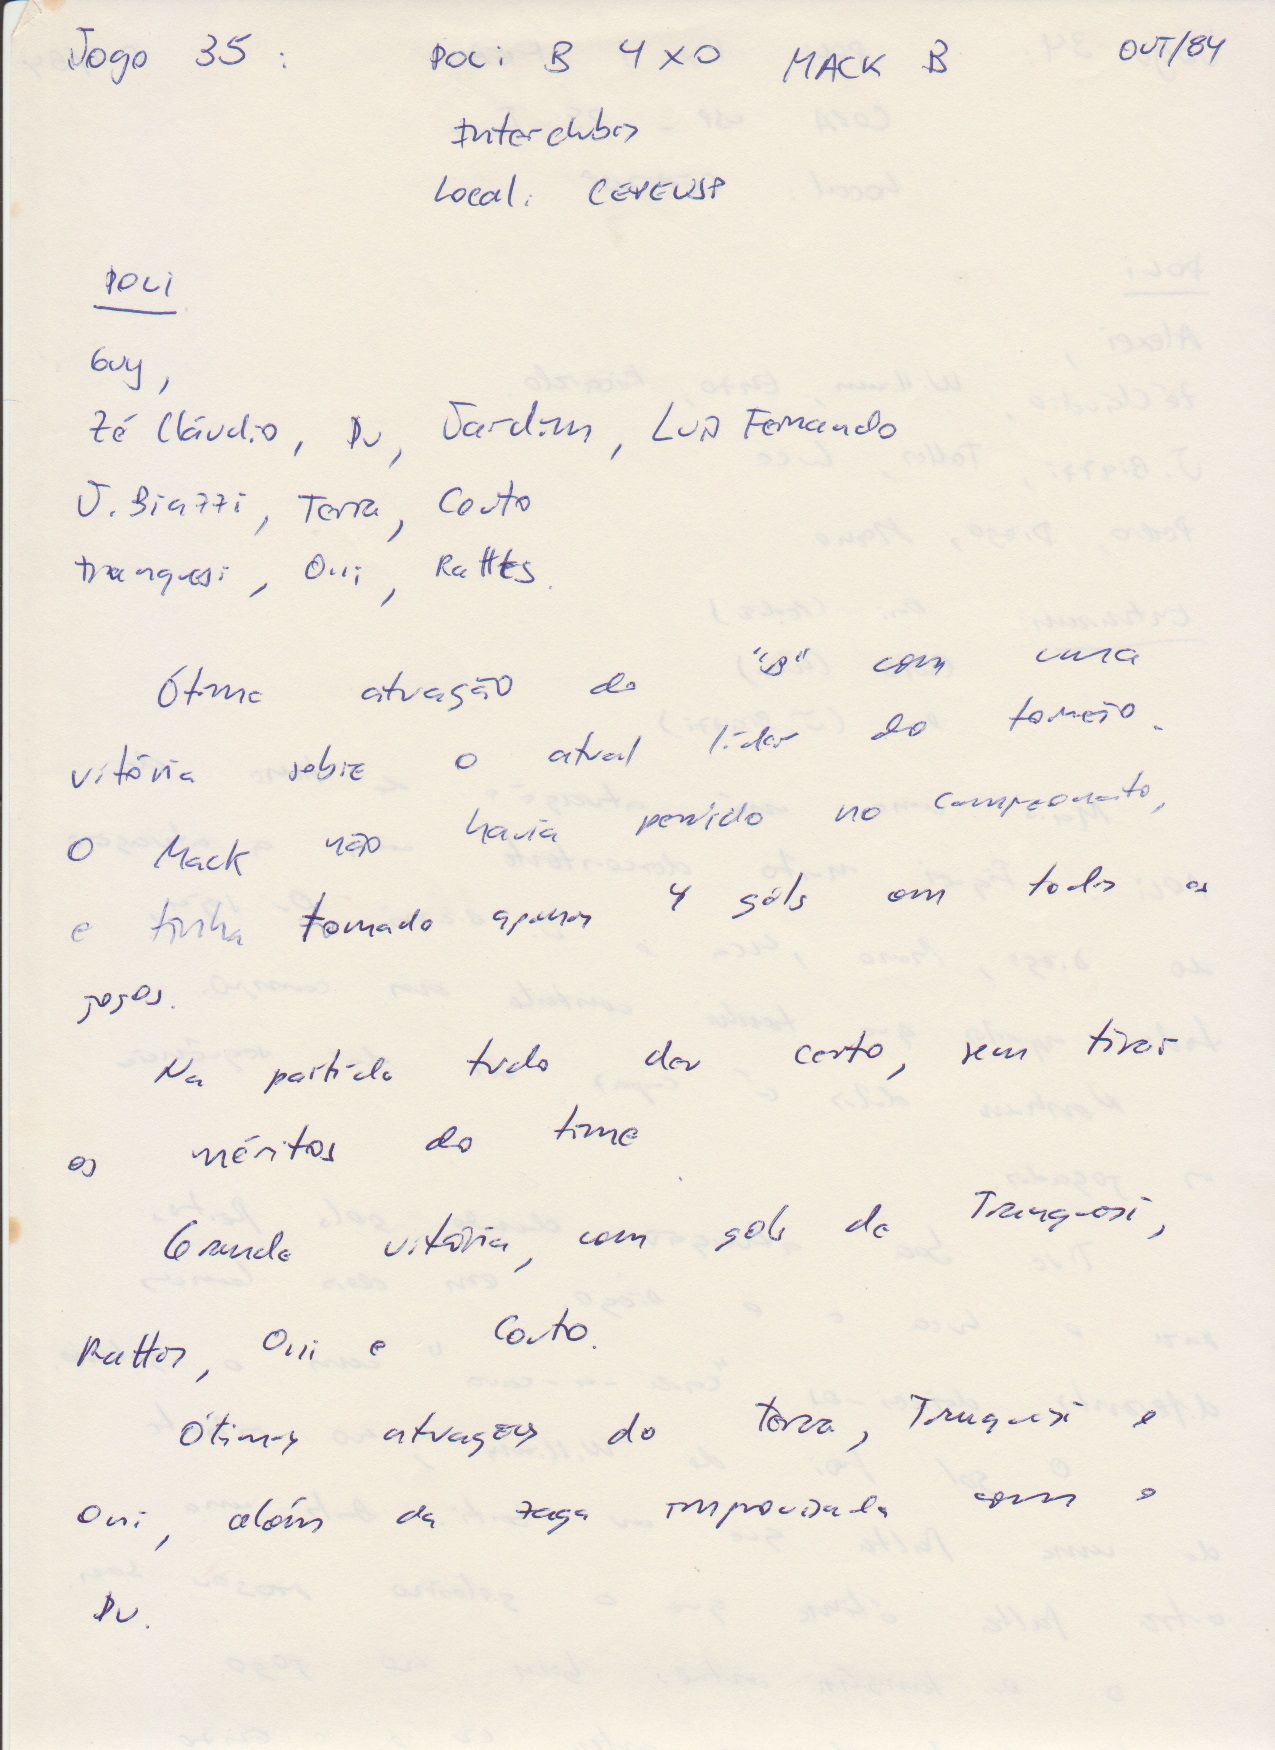 Jogo 35: POLI B 4 X 0 MACK B OUT/84
Interclubes
Local: CEPEUSP
POLI
Guy,
Zé Cláudio, Du, Jardim, Luis Fernando
J. Biazzi, Terra, Couto
Tranquesi, Oui, Rattes.
Ótima atuação do "B" com uma
vitória sobre o atual líder do torneio.
O Mack não havia perdido no campeonato,
e tinha tomado apenas 4 gols em todos os
jogos.
Na partida tudo deu certo, sem tirar
os méritos do time
Grande vitória, com gols de Tranquesi,
Rattes, Oui e Couto.
Ótimas atuações do Terra, Tranquesi e
Oui, além da zaga improvisada com o
Du.